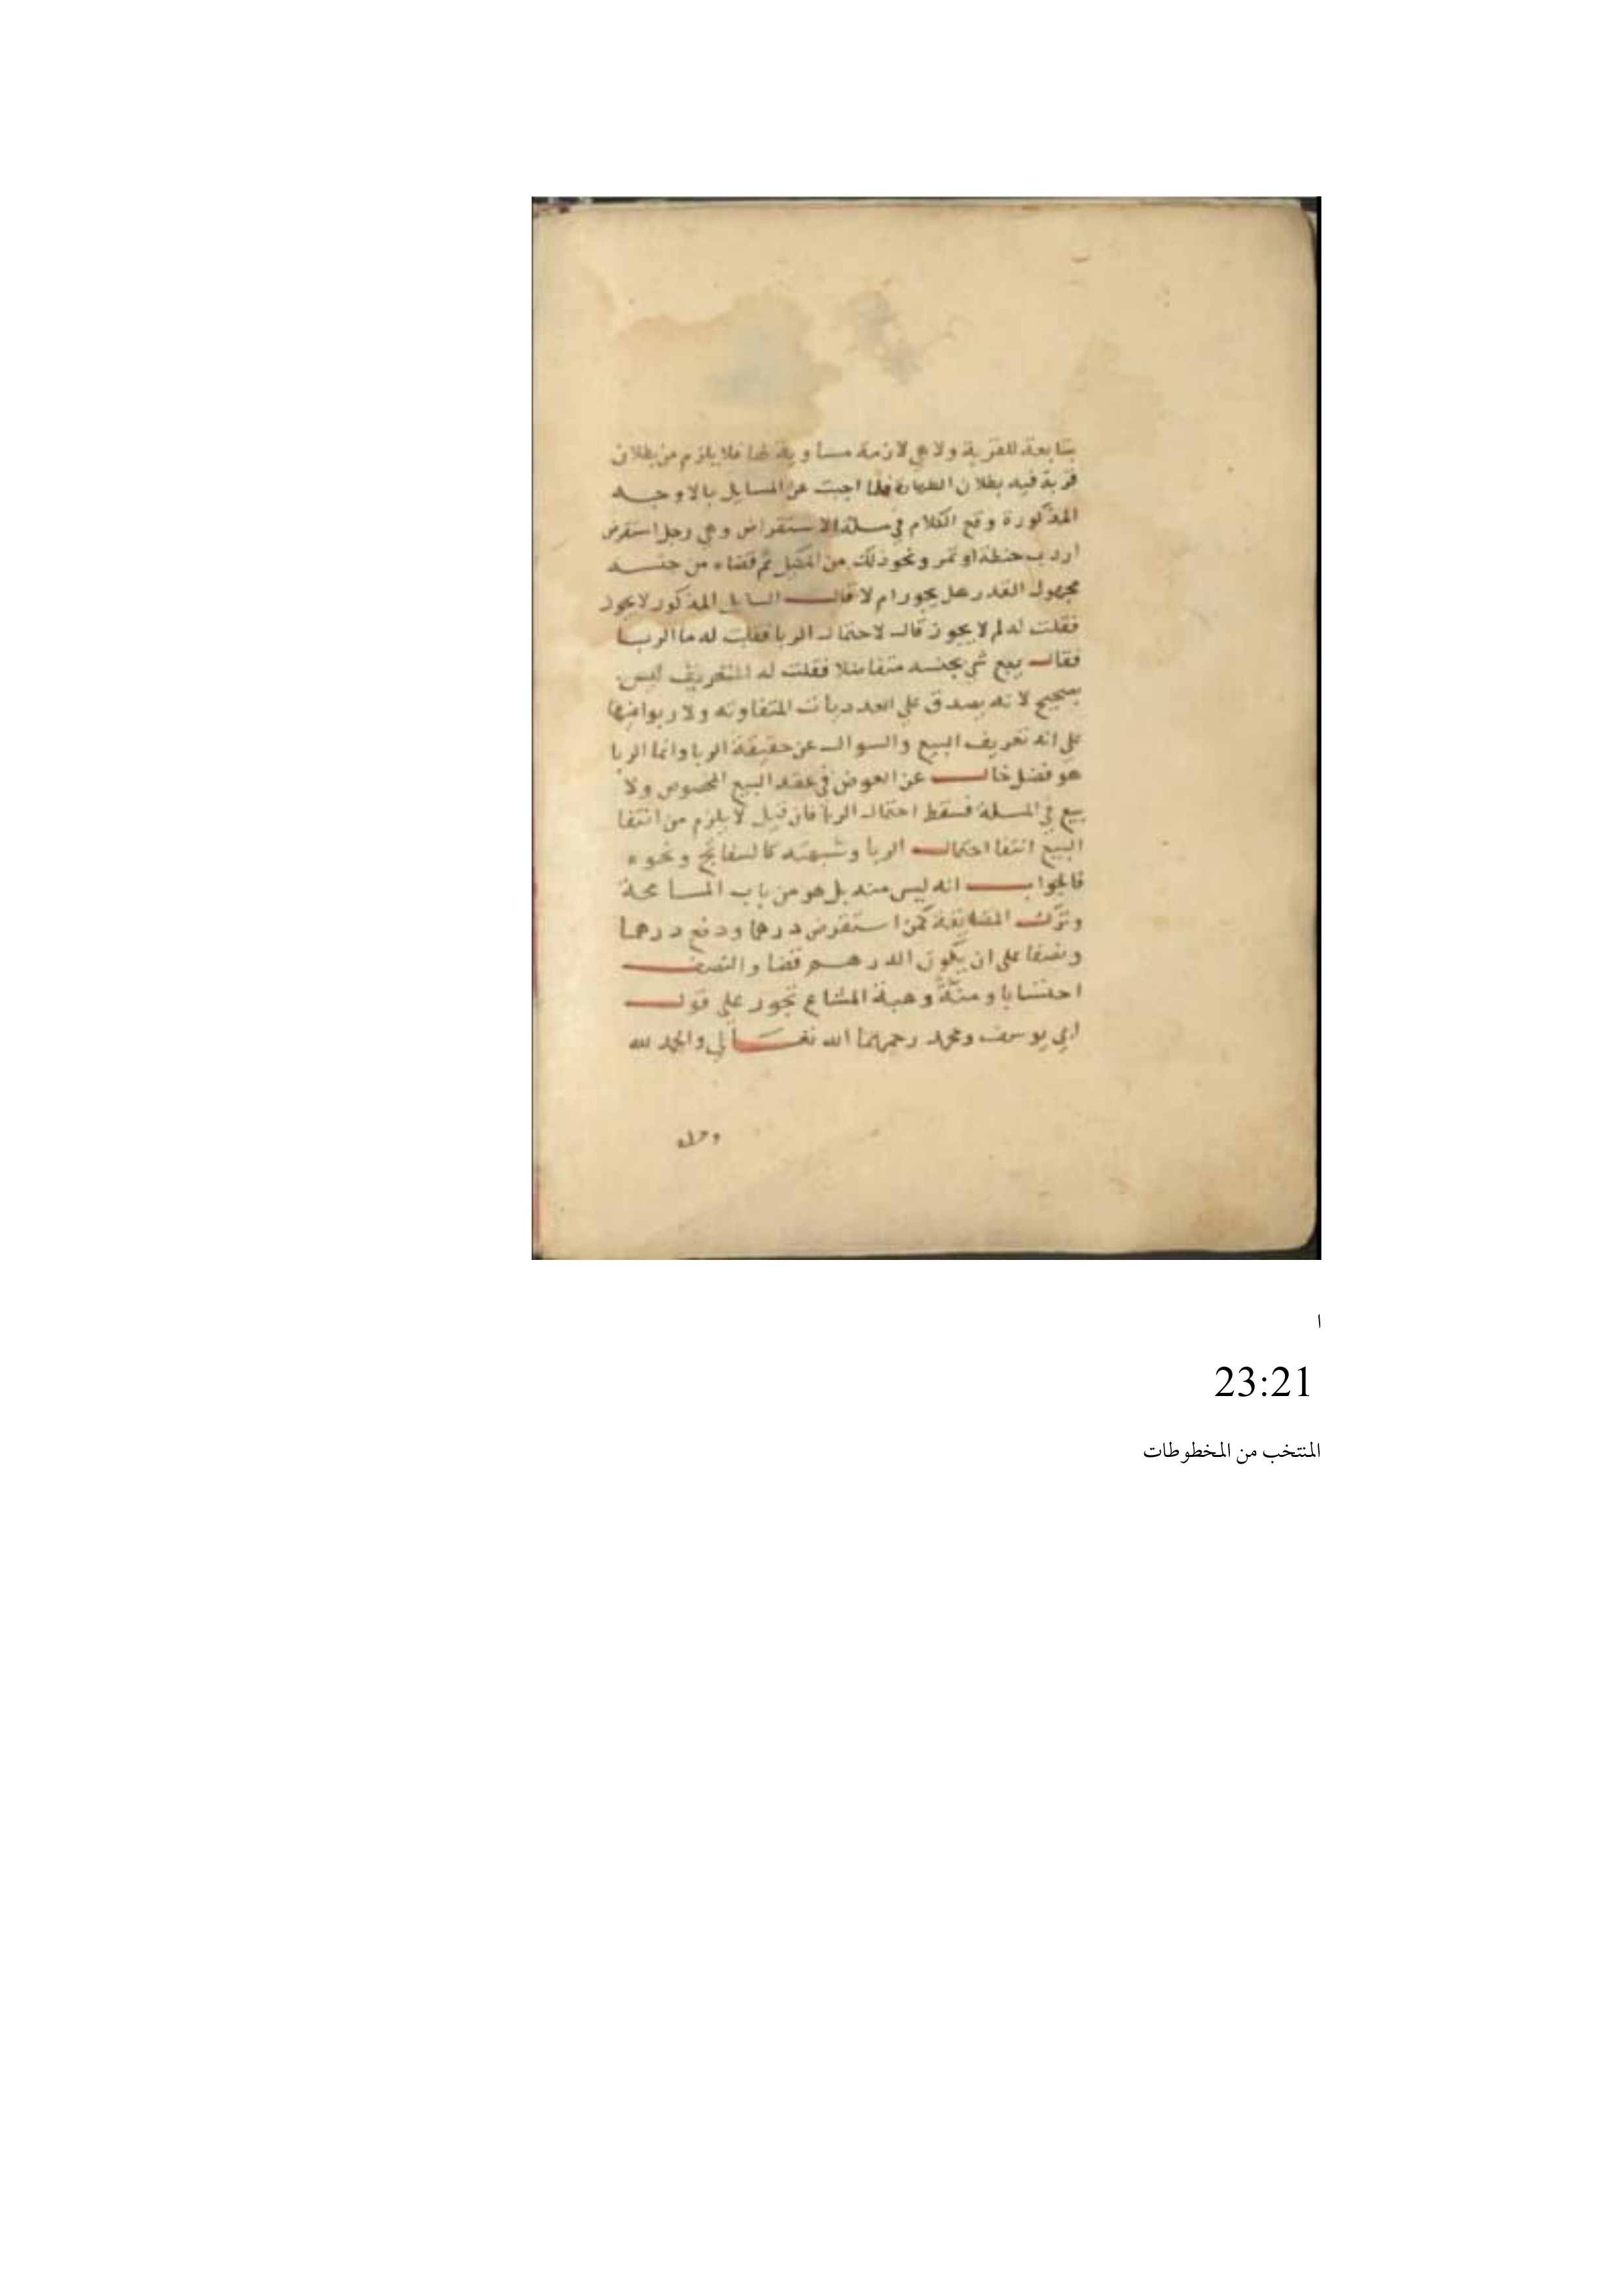 بتابعة للقربة ولا هي لازمة مساوية لها فلا يلزم من بطلان
قربة فيه بطلان الطهارة فلما اجبت عن المسايل بالاوجه
المذكورة وقع الكلام في مسلة الاستقراض وهي رجل استقرض
اردب حنطة او تمر ونحو ذلك من المكيل ثم قضاه من جنسه
مجهول القدر هل يجوز ام لا قال السايل المذكور لا يجوز
فقلت له لم لا يجوز قال لاحتمال الربا فقلت له ما الربا
فقال بيع شي بجنسه متفاضلا فقلت له التعريف ليس
بصحيح لانه يصدق على العدديات المتفاوته ولا ربوا فيها
على انه تعريف البيع والسوال عن حقيقة الربا وانما الربا
هو فضل خال عن العوض في عقد البيع المخصوص ولا
بيع في المسلة فسقط احتمال الربا فان قيل لا يلزم من انتفا
البيع انتفا احتمال الربا وشبهته كالسفاتج ونحوه
فالجواب انه ليس منه بل هو من باب المسامحة
وترك المضايقة كمن استقرض درهما ودفع درهما
ونصفا على ان يكون الدرهم قضا والنصف
احتسابا ومنّةً وهبة المشاع تجوز على قول
ابي يوسف ومحمد رحمهما الله تعالي والحمد لله
وحده
ا
23:21
المنتخب من المخطوطات